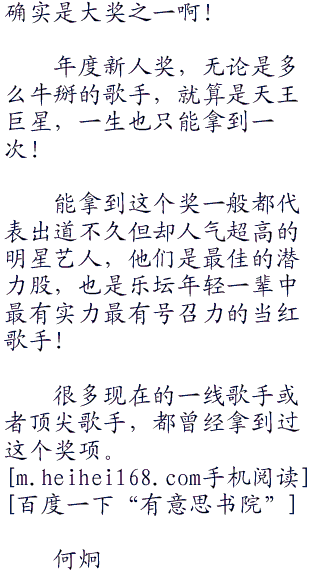 确实是大奖之一啊！
年度新人奖，无论是多
么牛掰的歌手，就算是天王
巨星，一生也只能拿到一
次！
能拿到这个奖一般都代
表出道不久但却人气超高的
明星艺人，他们是最佳的潜
力股，也是乐坛年轻一辈中
最有实力最有号召力的当红
歌手！
很多现在的一线歌手或
者顶尖歌手，都曾经拿到过
这个奖项。
[m.heihei168.com手机阅读]
[百度一下“有意思书院”]
何炯